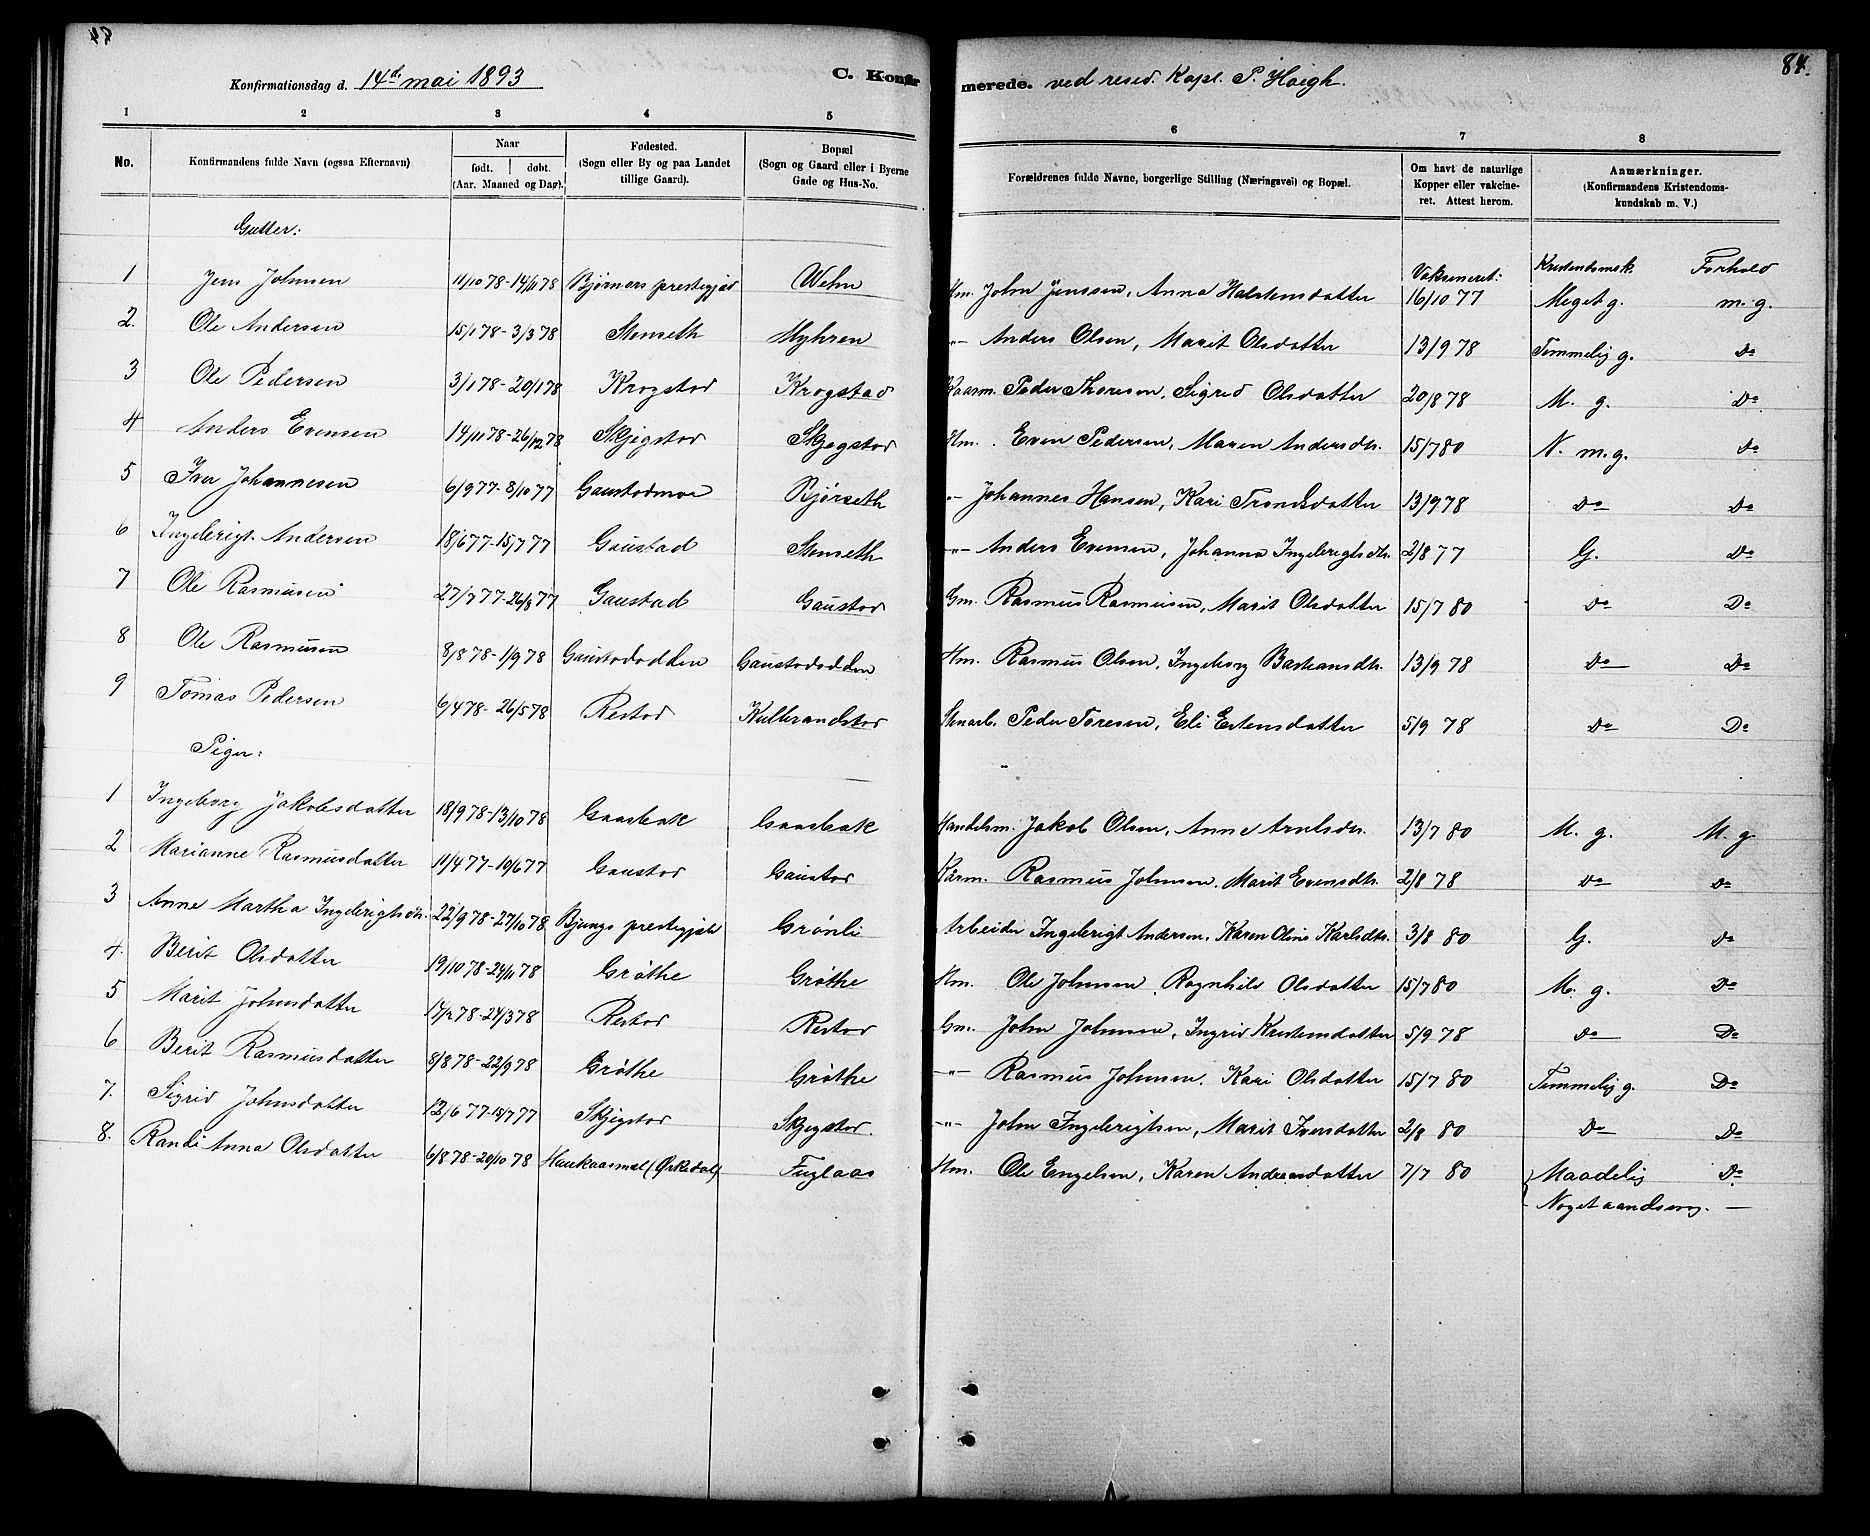 84.
Konfirmationsdag d. 14de mai 1893 C. Konfirmerede. ved resid. Kapl. P. Høegh.
1 2 3 4 5 6 7 8
No. Konfirmandens fulde Navn (ogsaa Efternavn) Naar født. døbt. (Aar. Maaned og Dag). Fødested. (Sogn eller By og paa Landet tillige Gaard). Bopæl (Sogn og Gaard eller i Byerne Gade og Hus-No. Forældrenes fulde Navne, borgerlige Stilling (Næringsvei) og Bopæl. Om havt de naturlige Kopper eller vakcineret. Attest herom. Anmærkninger. (Konfirmandens Kristendomskundskab m. V.)
Gutter:
Vaksineret: Kristendomsk. Forhold
1 Jens Johnsen 11/10 78 - 14/11 78 Bjørnørs prestegjæld Wehn Hm. John Jenssen, Anna Halstensdatter 16/10 77 Meget g. m. g.
2. Ole Andersen 15/1 78 - 3/3 78 Stenseth Myhren -"- Anders Olsen, Marit Olsdatter 13/9 78 Temmelig g. Do
3 Ole Pedersen 3/1 78 - 20/1 78 Krogstad Krogstad Kaarm. Peder Thoresen, Sigrid Olsdatter 20/8 78 M. g. Do
4 Anders Evensen 14/11 78 - 26/12 78 Skjegstad Skjegstad Hm. Even Pedersen, Maren Andersdtr. 15/7 80 N. m. g. Do
5 Iver Johannesen 6/9 77 - 8/10 77 Gaustadmoe Bjørseth -"- Johannes Hansen, Kari Trondsdatter 13/9 78 Do Do
6 Ingebrigt Andersen 18/6 77 - 15/7 77 Gaustad Stenseth -"- Anders Evensen, Johanna Ingebrigtsdtr. 2/8 77 G. Do
7 Ole Rasmusen 27/7 77 - 26/8 77 Gaustad Gaustad Gm. Rasmus Rasmusen, Marit Olsdatter 15/7 80 Do Do
8 Ole Rasmusen 8/8 78 - 1/9 78 Gaustadodden Gaustadodden Hm. Rasmus Olsen, Ingeborg Bastiansdtr. 13/9 78 Do Do
9 Tomas Pedersen 6/4 78 - 26/5 78 Restad Kulbrandstad Stenarb. Peder Toresen, Eli Estensdatter 5/9 78 Do Do
Piger:
1 Ingeborg Jakobsdatter 18/9 78 - 13/10 78 Gaasbak Gaasbak Handelsm. Jakob Olsen, Anne Arntsdtr. 13/7 80 M. g. M. g
2 Marianne Rasmusdatter 11/4 77 - 19/6 77 Gaustad Gaustad Kårm. Rasmus Johnsen, Marit Evensdtr. 2/8 78 Do Do
3 Anne Martha Ingebrigtsdtr. 22/9 78 - 27/10 78 Bjugns prestegjæld Grønli Arbeider Ingebrigt Andersen, Karen Oline Karlsdtr. 3/8 80 G. Do
4. Berit Olsdatter 19/10 78 - 24/11 78 Grøthe Grøthe Hm. Ole Johnsen, Ragnhild Olsdatter 15/7 80 M. g. Do
5 Marit Johnsdatter 17/2 78 - 24/3 78 Restad Restad Gm. John Johnsen, Ingrid Kristensdatter 5/9 78 Do Do
6 Berit Rasmusdatter 8/8 78 - 22/9 78 Grøthe Grøthe -"- Rasmus Johnsen, Kari Olsdatter 15/7 80 Temmelig g. Do
7. Sigrid Johnsdatter 12/6 77 - 15/7 77 Skjegstad Skjegstad. -"- John Ingebrigtsen, Marit Iversdatter 2/8 80 Do Do
8. Randi Anna Olsdatter 6/8 78 - 20/10 78 Haukaasmæl (Ørkedal) Fuglaas Hm. Ole Engelsen, Karen Andreasdatter 7/7 80 Maadelig Do
Noget aandssvag. —